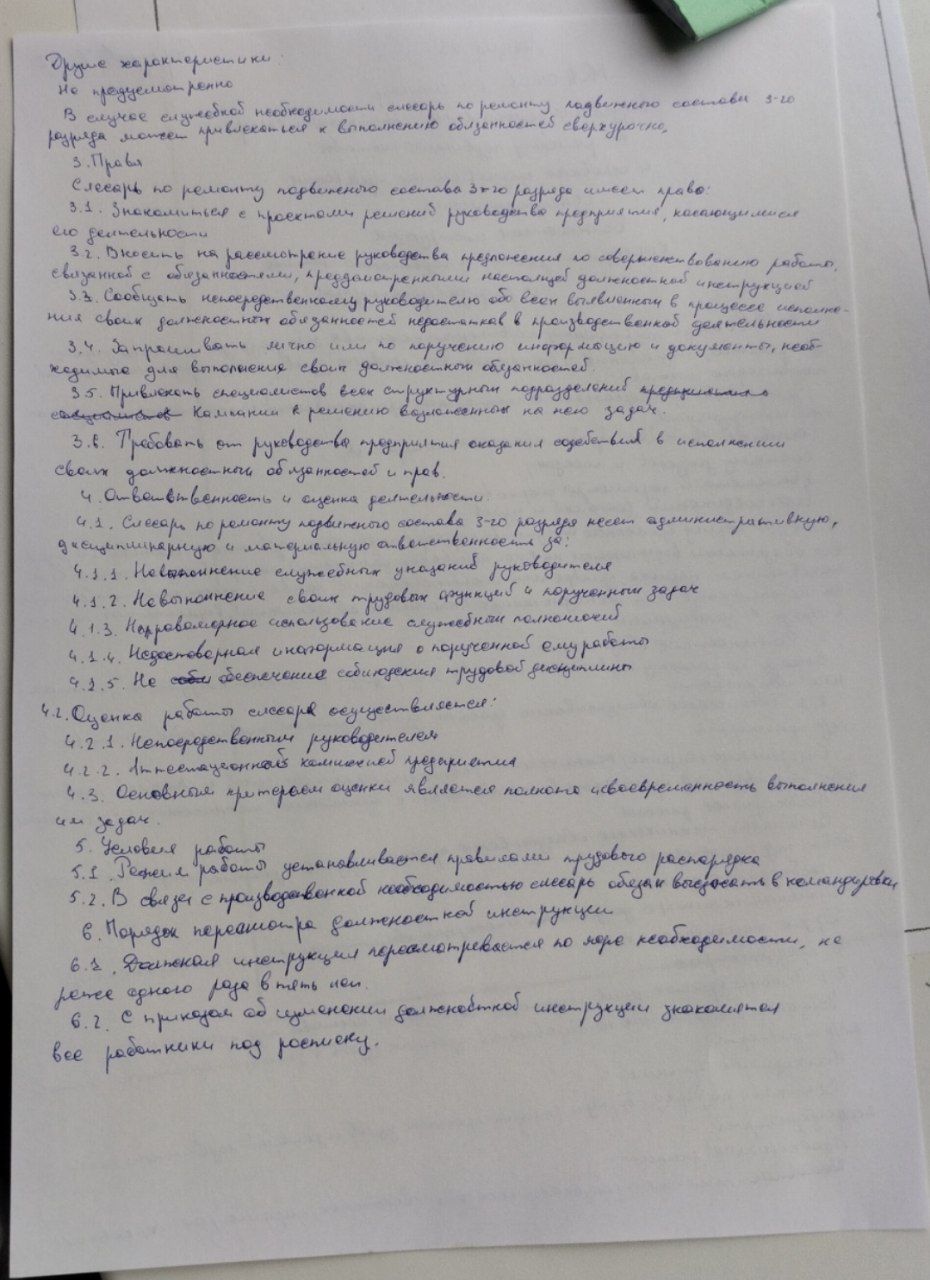 Другие характеристики:
Не предусмотренно
В случае служебной необходимости слесарь по ремонту подвижного состава 3-го
разряда может привлекаться к выполнению обязанностей сверхурочно.
3. Права
Слесарь по ремонту подвижного состава 3-го разряда имеет право:
3.1. Знакомиться с проектами решений руководства предприятия, касающимися
его деятельности
3.2. Вносить на рассмотрение руководства предложения по совершенствованию работы,
связанной с обязанностями, предусмотренными настоящей должностной инструкцией
3.3. Сообщать непосредственному руководителю обо всех выявленных в процессе исполне-
ния своих должностных обязанностей недостатков в производственной деятельности
3.4. Запрашивать лично или по поручению информацию и документы, необ-
ходимые для выполнения своих должностных обязанностей.
3.5. Привлекать специалистов всех структурных подразделений
Кампании к решению возложенных на него задач.
3.6. Требовать от руководства предприятия оказания содействия в исполнении
своих должностных обязанностей и прав.
4. Ответственность и оценка деятельности.
4.1. Слесарь по ремонту подвижного состава 3-го разряда несет административную,
дисциплинарную и материальную ответственность за:
4.1.1. Невыполнение служебных указаний руководителя
4.1.2. Невыполнение своих трудовых функций и порученных задач
4.1.3. Неправомерное использование служебных полномочий
4.1.4. Недостоверная информация о порученной ему работы
4.1.5. Не обеспечение соблюдения трудовой дисциплины
4.2. Оценка работы слесаря осуществляется:
4.2.1. Непосредственным руководителем
4.2.2. Аттестационной комиссией предприятия
4.3. Основным критерием оценки является полнота и своевременность выполнения
им задач.
5. Условия работы
5.1. Режим работы устанавливается правилами трудового распорядка
5.2. В связи с производственной необходимостью слесарь обязан выезжать в командировки
6. Порядок пересмотра должностной инструкции
6.1. инструкция пересмотревается по мере необходимости, не
реже одного раза в пять лет.
6.2. С приказом об изменении должностной инструкции знакомятся
все работники под росписку.